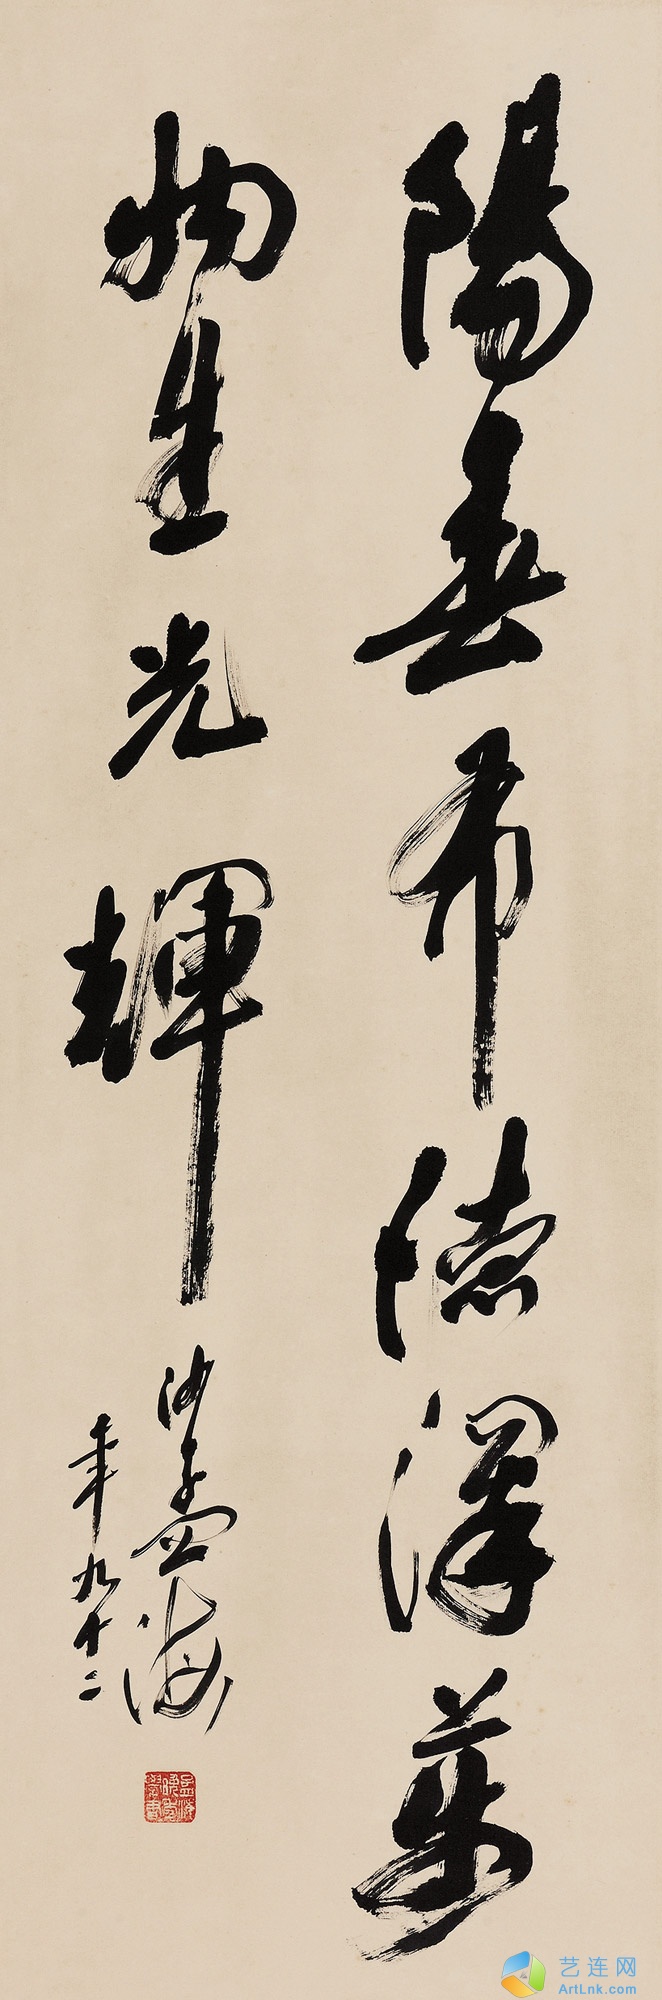 陽春布德澤萬
物生光輝
沙孟海
年九十二
艺连网
ArtLnk.com